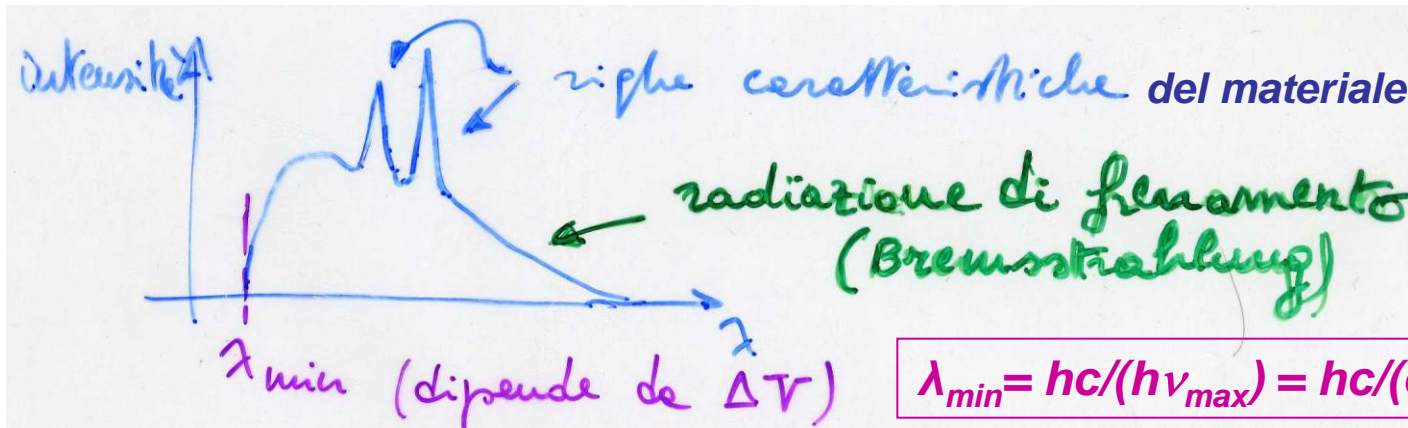 intensità
righe caratteristiche del materiale
radiazione di frenamento
(Bremsstrahlung)
λ
λ min (dipende da ΔV)
λmin= hc/(hνmax) = hc/(